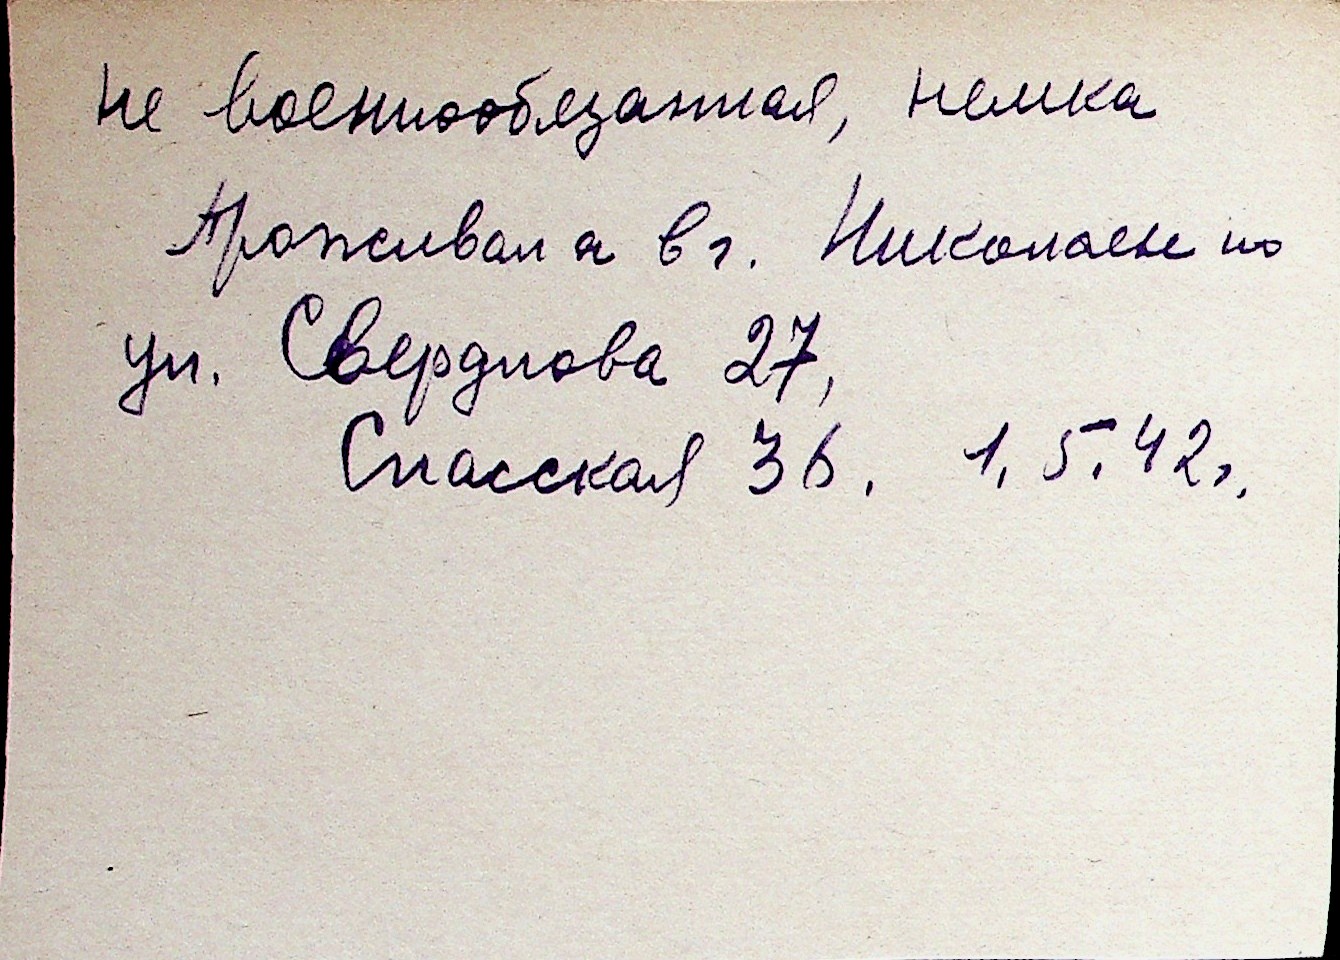 не военнообязанная, немка
Проживала в г. Николаеве по
ул. Свердлова 27,
Спасская 36. 1.5.42г.